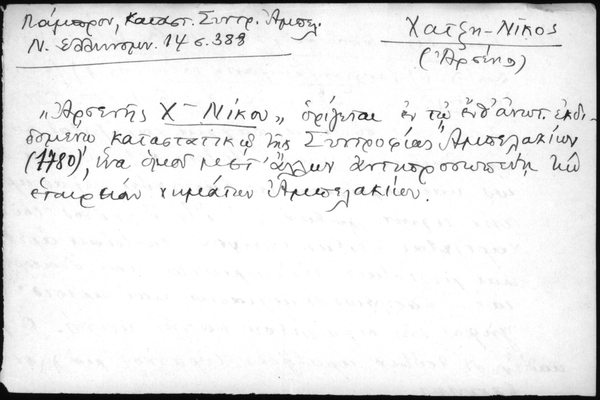 Λάμπρου, Καταστ. Συντρ. Ἀμπελ.
Ν. Ἑλληνομν. 14 σ. 388
Χατζη-Νίκος
(Ἀρσένης)
„Ἀρσενῆς Χ΄΄ Νίκου„ ὁρίζεται ἐν τῷ ἐνθ' ἀνωτ. ἐκδι-
δομένῳ καταστατικῷ τῆς Συντροφίας Ἀμπελακίων
(1780), ἵνα ὁμοῦ μετ' ἄλλων ἀντιπροσωπεύῃ τὴν
ἑταιρείαν νημάτων Ἀμπελακίων.